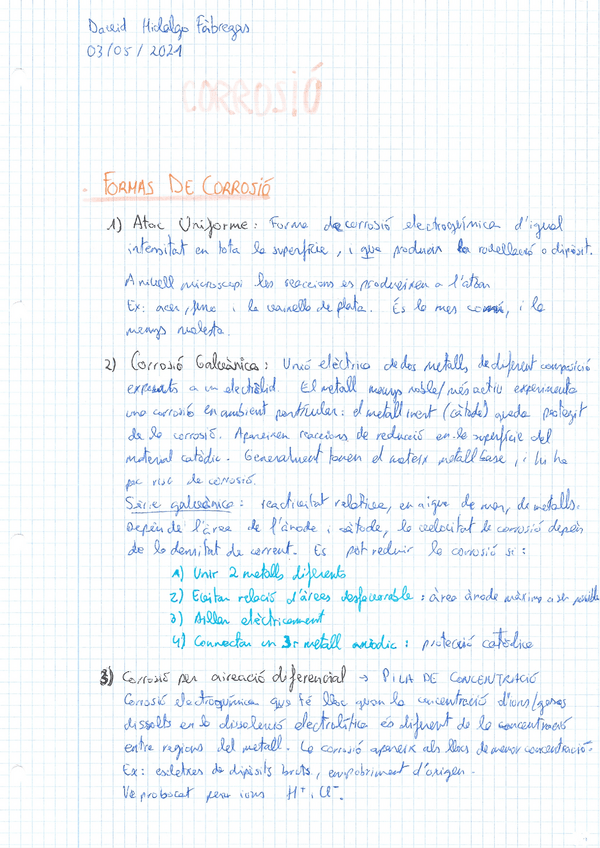 David Hidalgo Fàbregas
03/05/2021
CORROSIÓ
· FORMAS DE CORROSIÓ
1) Atac Uniforme: Forma de corrosió electroquímica d'igual
intensitat en tota la superfície, i que produeix la rovellació o dipòsit.
A nivell microscopi les reaccions es produeixen a l'atzar
Ex: acer, ferro i la vaixella de plata. És la mes comú, i la
menys molesta.
2) Corrosió Galvànica: Unió elèctrica de dos metalls de diferent composició
exposats a un electròlid. El metall menys noble/més actiu experimenta
una corrosió en ambient particular: el metall inert (càtode) queda protegit
de la corrosió. Apareixen reaccions de reducció en la superfície del
material catòdic. Generalment tenen el mateix metall base, i hi ha
poc risc de corrosió.
Sèrie galvànica: reactivitat relativa, en aigua de mar, de metalls.
Depèn de l'àrea de l'ànode i càtode, la velocitat de corrosió depèn
de la densitat de corrent. Es pot reduir la corrosió si:
1) Unir 2 metalls diferents
2) Evitar relació d'àrees desfavorable: àrea ànode màxima a ser possible
3) Aïllar elèctricament
4) Connectar un 3r metall anòdic: protecció catòdica
3) Corrosió per aireació diferencial → PILA DE CONCENTRACIÓ
Corrosió electroquímica que té lloc quan la concentració d'ions/gasos
dissolts en la dissolució electrolítica és diferent de la concentració
entre regions del metall. La corrosió apareix als llocs de menor concentració.
Ex: escletxes de dipòsits bruts, empobriment d'oxigen.
Ve provocat per ions H⁺ i Cl⁻.